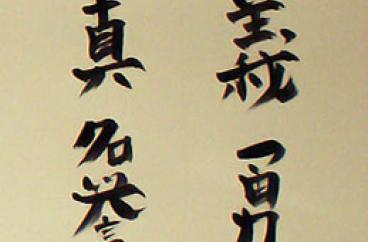 義勇
真名誉